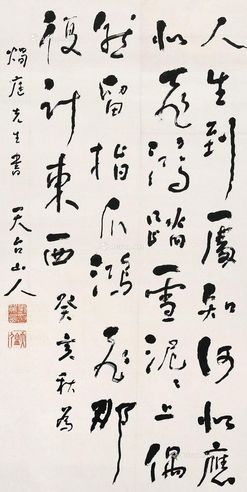 人生到處知何似應
似飛鴻踏雪泥〻上偶
然留指爪鴻飛那
復計東西 癸亥秋為
庭先生書 天台山人